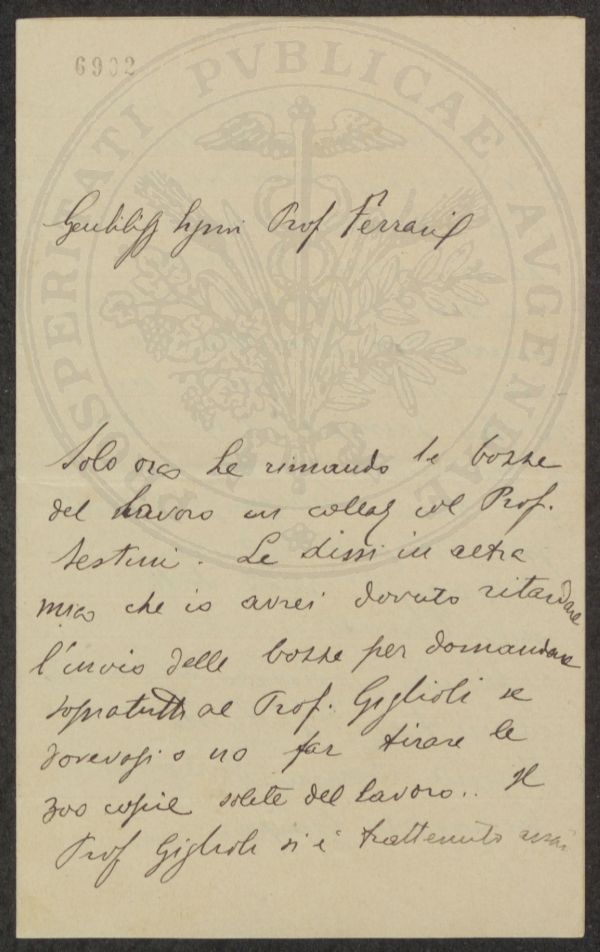 6902
PROSPERITATI PVBLICAE AVGENDAE
Gentiliss Sigmi Prof Ferrari
Solo ora Le rimando le bozze
del lavoro in collab col Prof.
Sestini. Le dissi in altra
mia che io avrei dovuto ritardare
l'invio delle bozze per domandare
sopratutto al Prof. Giglioli se
dovevasi o no far tirare le
300 copie solite del lavoro.. Il
Prof Giglioli si è trattenuto assai